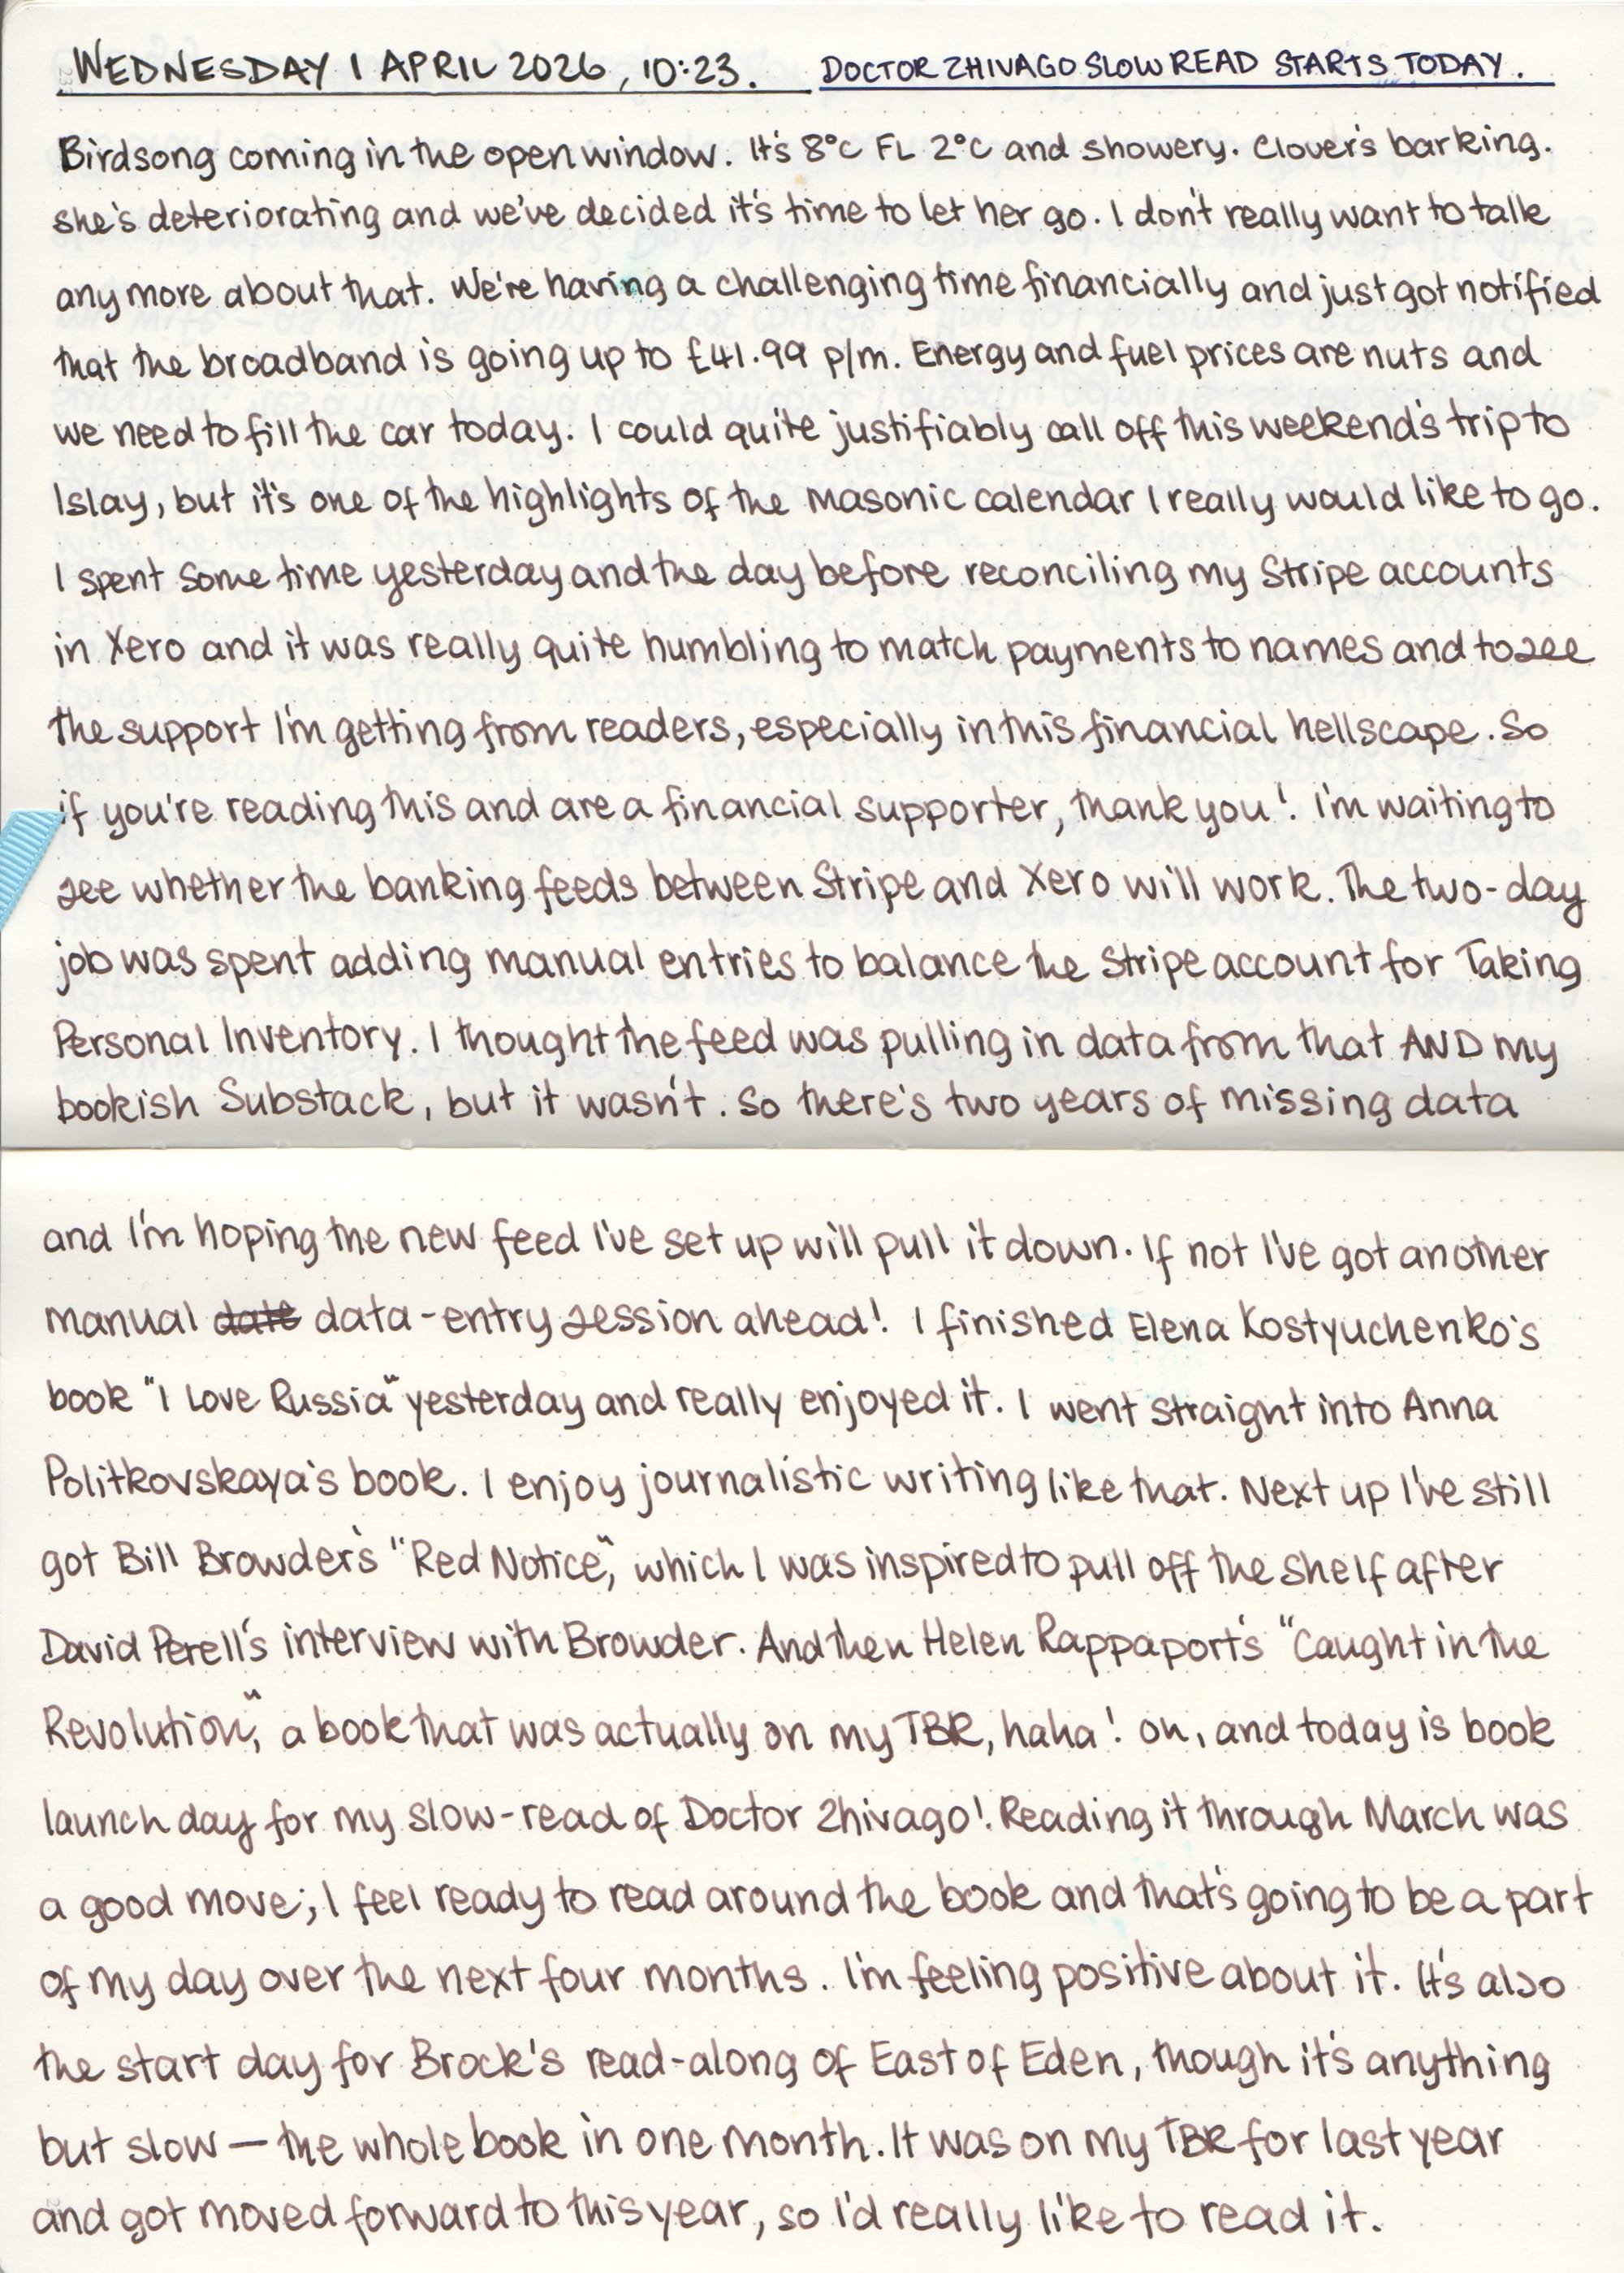 WEDNESDAY 1 APRIL 2026, 10:23. DOCTOR ZHIVAGO SLOW READ STARTS TODAY.
Birdsong coming in the open window. It's 8°C FL 2°C and showery. Clover's barking.
she's deteriorating and we've decided it's time to let her go. I don't really want to talk
any more about that. We're having a challenging time financially and just got notified
that the broadband is going up to £41.99 p/m. Energy and fuel prices are nuts and
we need to fill the car today. I could quite justifiably call off this weekend's trip to
Islay, but it's one of the highlights of the Masonic calendar I really would like to go.
I spent some time yesterday and the day before reconciling my Stripe accounts
in Xero and it was really quite humbling to match payments to names and to see
the support I'm getting from readers, especially in this financial hellscape. So
if you're reading this and are a financial supporter, thank you! I'm waiting to
see whether the banking feeds between Stripe and Xero will work. The two-day
job was spent adding manual entries to balance the Stripe account for Taking
Personal Inventory. I thought the feed was pulling in data from that AND my
bookish Substack, but it wasn't. So there's two years of missing data
and I'm hoping the new feed I've set up will pull it down. If not I've got another
manual date data-entry session ahead! I finished Elena Kostyuchenko's
book "I Love Russia" yesterday and really enjoyed it. I went straight into Anna
Politkovskaya's book. I enjoy journalistic writing like that. Next up I've still
got Bill Browder's "Red Notice", which I was inspired to pull off the shelf after
David Perell's interview with Browder. And then Helen Rappaport's "Caught in the
Revolution", a book that was actually on my TBR, haha! Oh, and today is book
launch day for my slow-read of Doctor Zhivago! Reading it through March was
a good move; I feel ready to read around the book and that's going to be a part
of my day over the next four months. I'm feeling positive about it. It's also
the start day for Brock's read-along of East of Eden, though it's anything
but slow — the whole book in one month. It was on my TBR for last year
and got moved forward to this year, so I'd really like to read it.